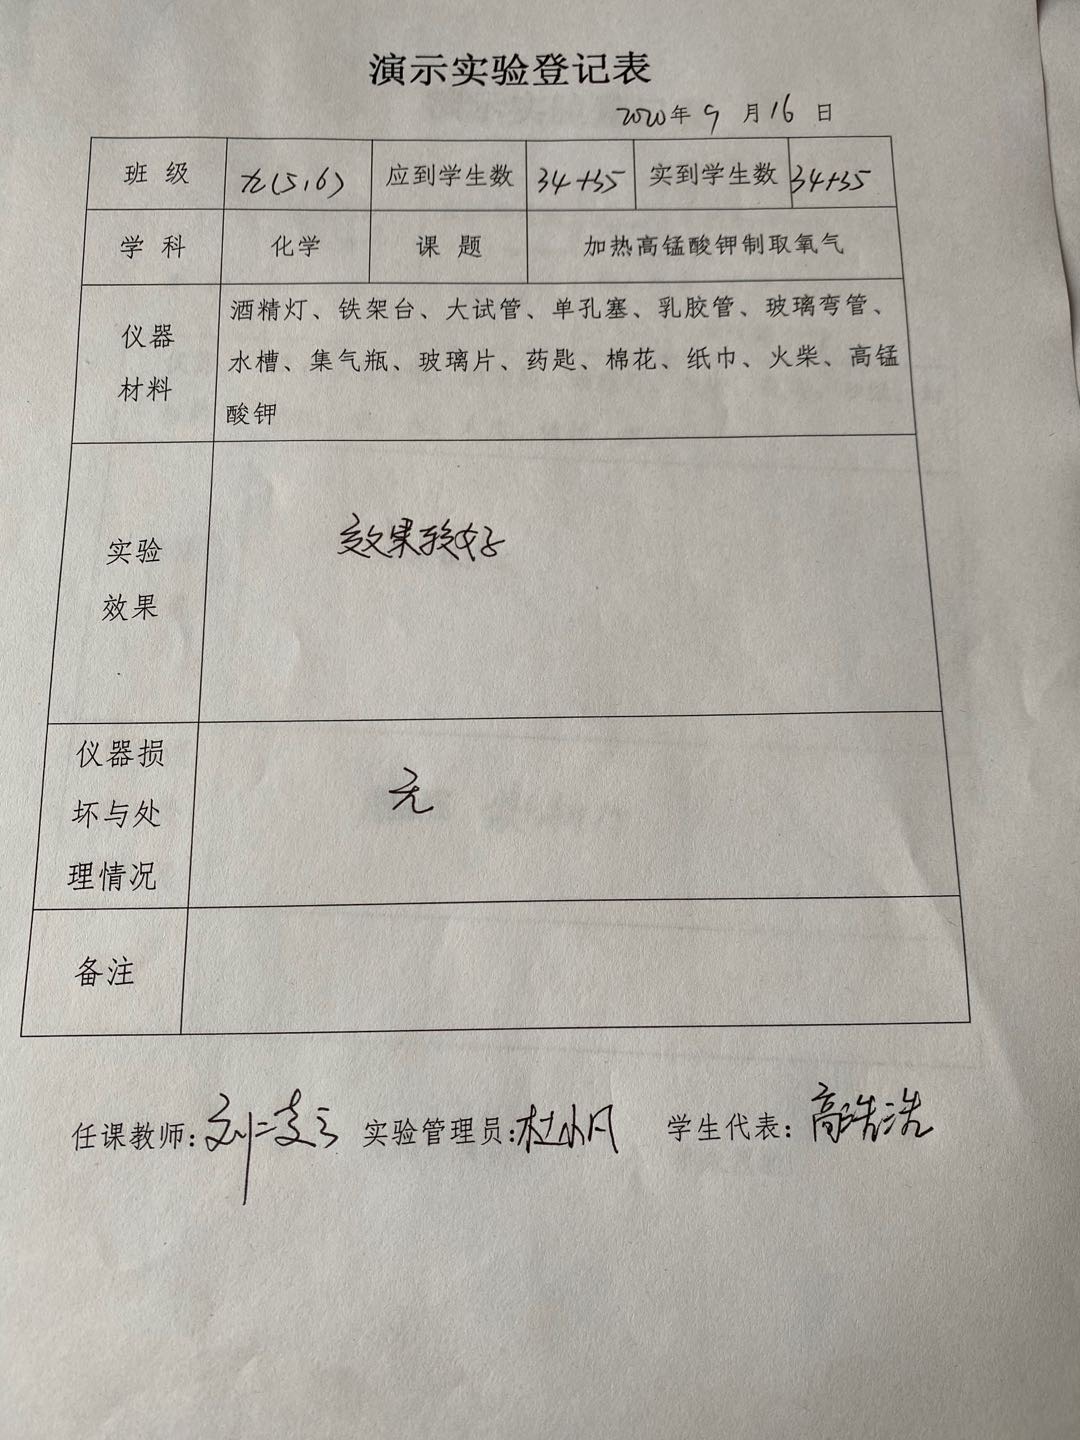 演示实验登记表
2020年9月16日
班级 九(5,6) 应到学生数 34+35 实到学生数 34+35
学科 化学 课题 加热高锰酸钾制取氧气
仪器
材料
酒精灯、铁架台、大试管、单孔塞、乳胶管、玻璃弯管、
水槽、集气瓶、玻璃片、药匙、棉花、纸巾、火柴、高锰
酸钾
实验
效果
效果较好
仪器损
坏与处
理情况
无
备注
任课教师: 刘 实验管理员: 杜小凡 学生代表: 高浩浩